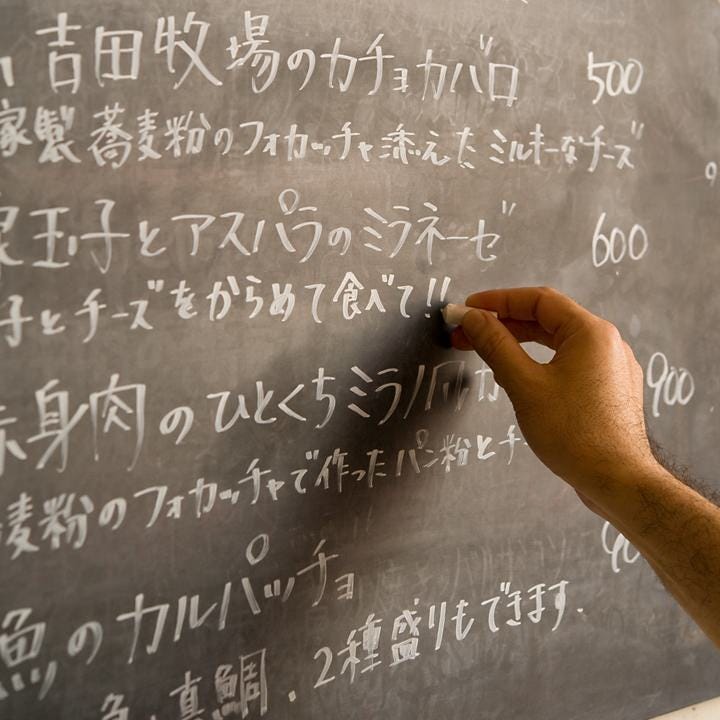 吉田牧場のカチョカバロ 500
家製蕎麦粉のフォカッチャ添えたミルキーなチーズ
家玉子とアスパラのミラネーゼ 600
子とチーズをからめて食べて!!
赤身肉のひとくちミラノ風カ 900
麦粉のフォカッチャで作ったパン粉とチ
魚のカルパッチョ
真鯛. 2種盛りもできます.